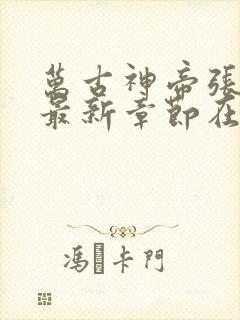 萬古神帝張
最新章節在
馮卡門